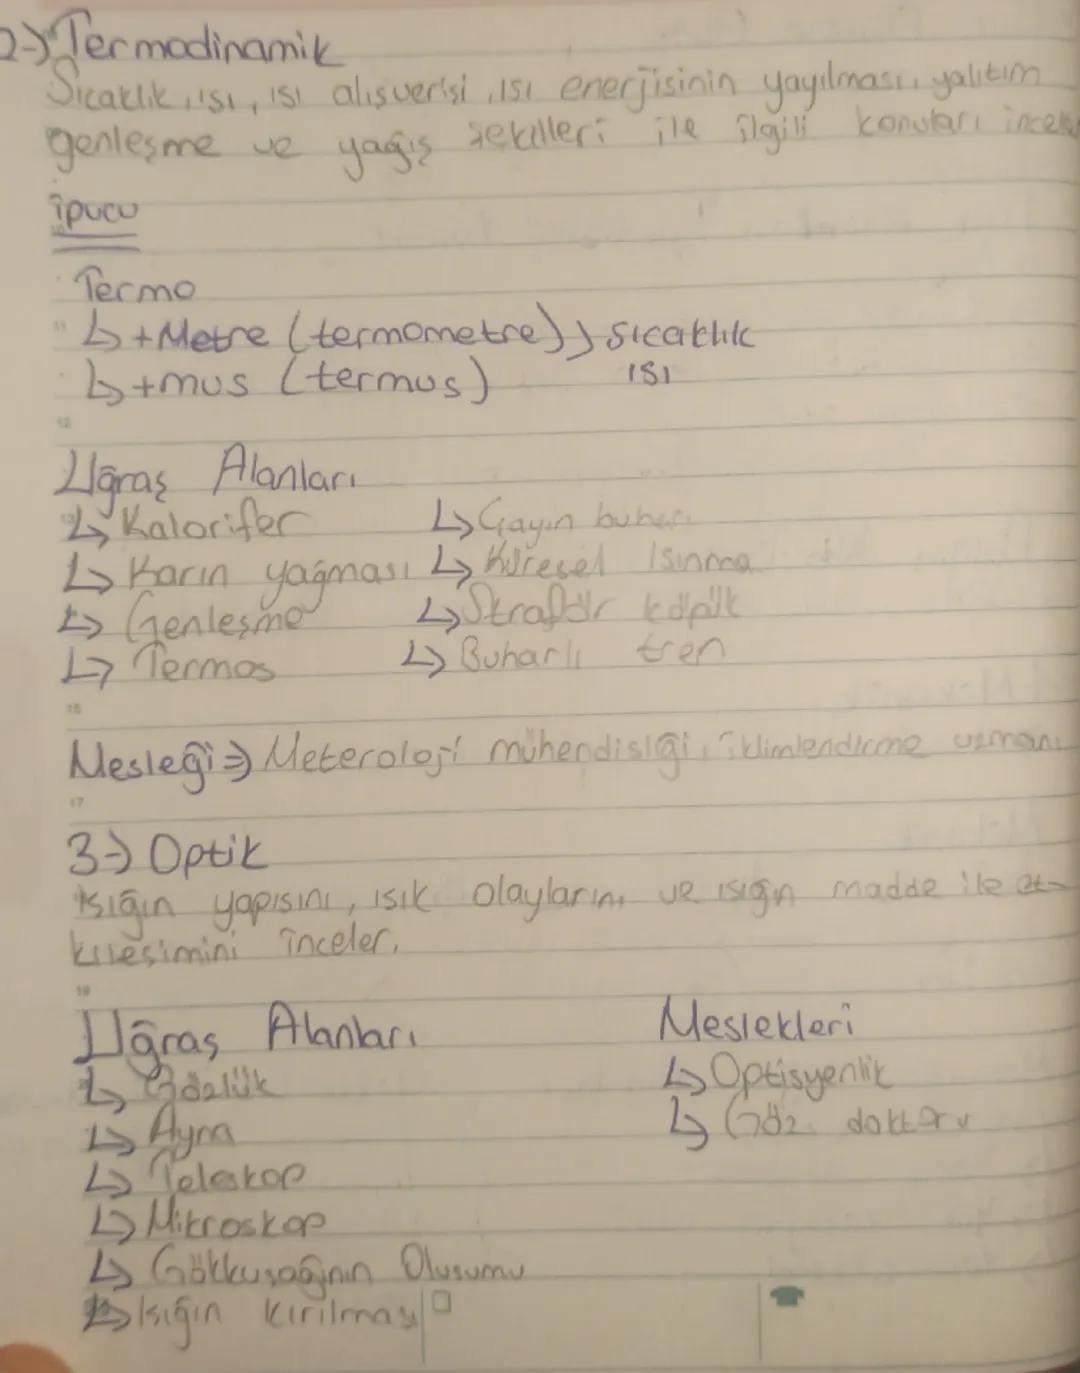 2-) Termodinamik
Sıcaklık, ısı, ısı alışverişi, ısı enerjisinin yayılması, yalıtım
genleşme ve yağış şekilleri ile ilgili konuları inceler
ipucu
Termo
11 ↳ +Metre (termometre) } sıcaklık
↳ +mus (termus) ısı
12
Uğraş Alanları
↳ Kalorifer ↳ Çayın buharı
↳ Karın yağması ↳ Küresel Isınma
↳ Genleşme ↳ Strafor köpük
↳ Termos ↳ Buharlı tren
Mesleği ⇒ Meteroloji mühendisliği, iklimlendirme uzmanı
17
3-) Optik
Işığın yapısını, ışık olaylarını ve ışığın madde ile et-
kileşimini inceler.
Uğraş Alanları Meslekleri
↳ Gözlük ↳ Optisyenlik
↳ Ayna ↳ Göz doktoru
↳ Teleskop
↳ Mikroskop
↳ Gökkuşağının Oluşumu
↳ Işığın kırılması